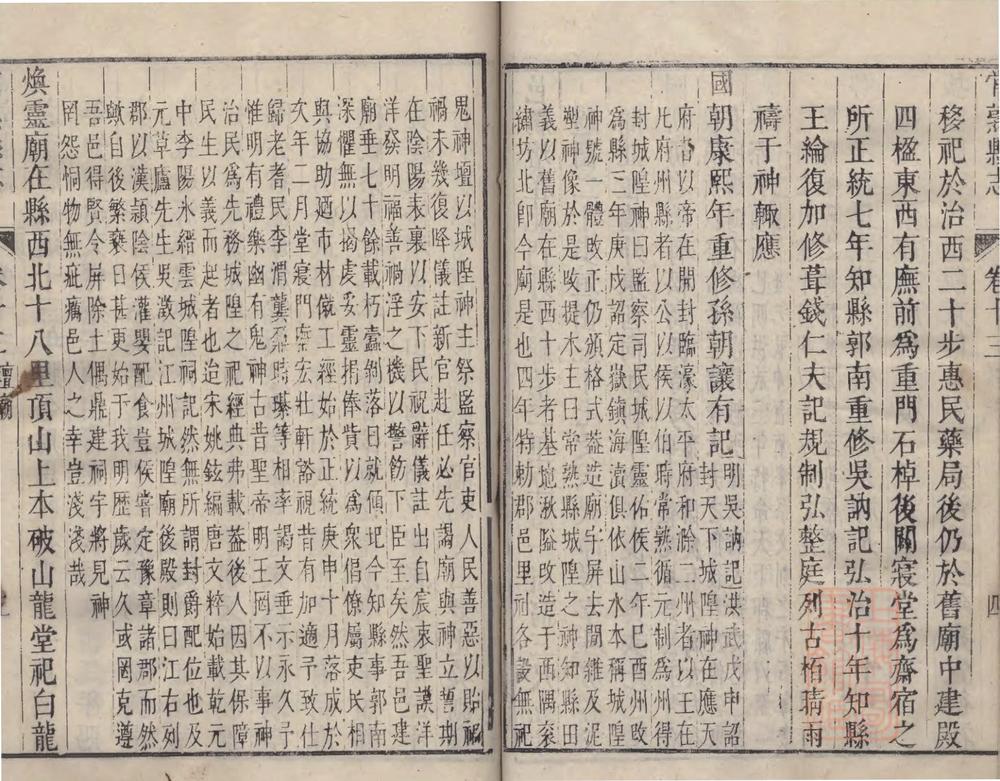 常熟縣志 卷十三
移祀於治西二十步惠民藥局後仍於舊廟中建殿
四楹東西有廡前為重門石棹後闢寢堂為齋宿之
所正統七年知縣郭南重修吳訥記弘治十年知縣
王綸復加修葺錢仁夫記規制弘整庭列古栢晴雨
禱于神輙應
國朝康熙年重修孫朝讓有記
明吳訥記洪武戊申詔封天下城隍神在應天
府者以帝在開封臨濠太平府和滁二州者以王在
凡府州縣者以公以侯以伯時常熟循元制為州得
封城隍神曰監察司民城隍靈佑侯二年巳酉州改
為縣三年庚戌詔定嶽鎮海瀆俱依山水本稱城隍
神號一體改正仍頒格式葢造廟宇屏去閒雜及泥
塑神像於是改提木主曰常熟縣城隍之神知縣田
義以舊廟在縣西者基地湫隘改造于西西隅田衮
繡坊北卽今廟是也四年特勅郡邑里社各設無祀
鬼神壇以城隍神主祭監察官吏人民善惡以貽禍
禍未幾復降儀註新官赴任必先謁廟與神立誓期
在陰陽表裏以安下民祝辭儀註出自宸衷聖謨洋
洋發明福善禍淫之機以警飭下臣至矣然吾邑建
廟垂七十餘載朽蠧剝落日就傾圯今知縣事郭南
深懼無以揭虔妥靈捐俸貲以為衆倡僚屬吏民相
與協助廼市材僦工經始於正統庚申十月落成於
次年二月堂寢門廡宏壯軒豁視昔有加適予致仕
歸老耆民李渭龔鼎時璪等相率謁文垂示永久予
惟明有禮樂幽有鬼神古昔聖帝明王罔不以事神
治民為先務城隍之祀經典弗載葢後人因其保障
民生以義而起者也迨宋姚鉉編唐文粹始載乾元
中李陽氷縉雲城隍祠記然無所謂封爵配位也及
元草廬先生吳澂記江州城隍廟後殿則曰江右列
郡以漢潁陰侯灌嬰配食豈侯嘗定豫章諸郡而然
歟自後繁䙝日甚更始于我明歷歲云久或罔克遵
吾邑得賢令屏除土偶鼎建祠宇將見神
罔怨恫物無疵癘邑人之幸豈淺淺哉
煥靈廟在縣西北十八里頂山上本破山龍堂祀白龍